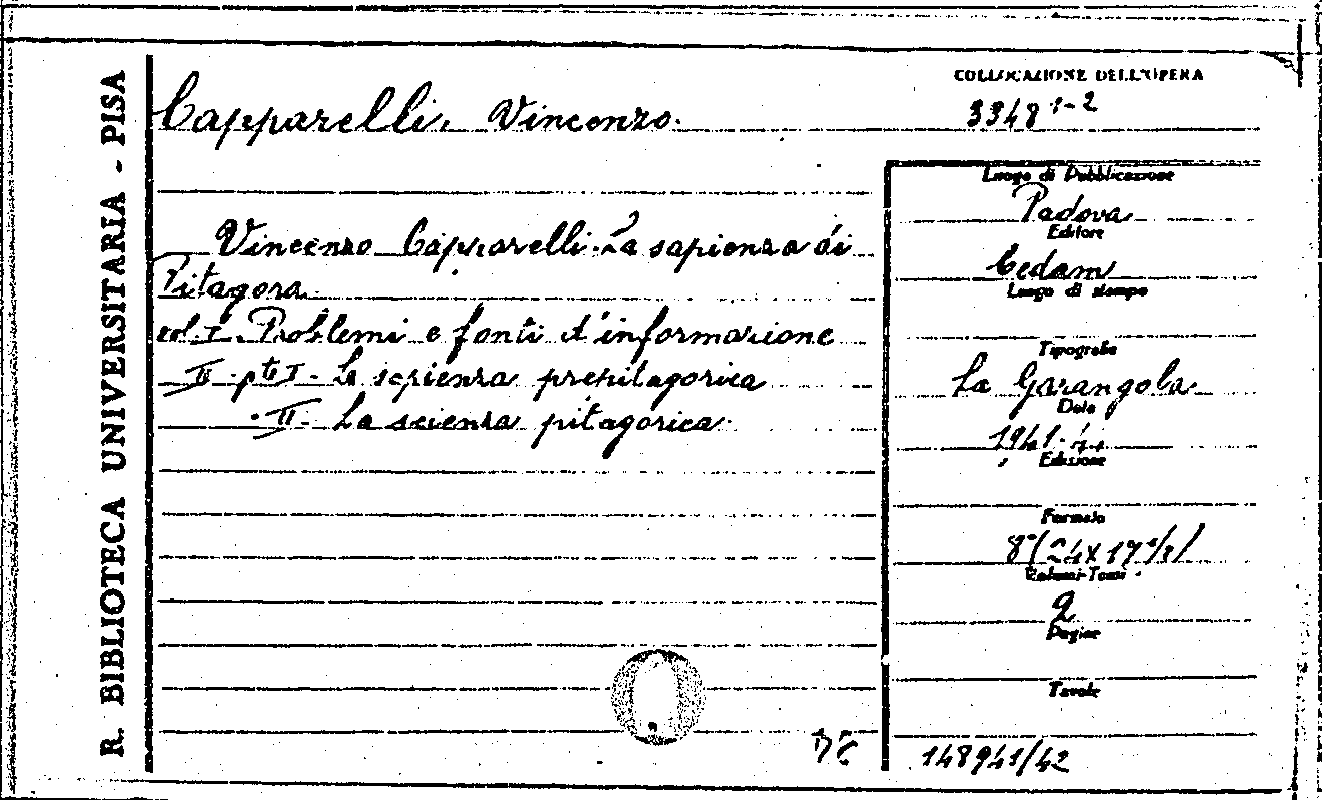 R. BIBLIOTECA UNIVERSITARIA - PISA
Capparelli, Vincenzo.
COLLOCAZIONE DELL'OPERA
3348 1-2
Vincenzo Capparelli. La sapienza di
Pitagora.
vol. I. Problemi e fonti d'informazione
II - pte I - La sapienza prepitagorica
" II - La scienza pitagorica.
Luogo di Pubblicazione
Padova
Editore
Cedam
Luogo di stampa
Tipografia
La Garangola
Data
1941-44
Edizione
Formato
8° (24x17 1/2)
Volumi-Tomi
2
Pagine
Tavole
148941/42